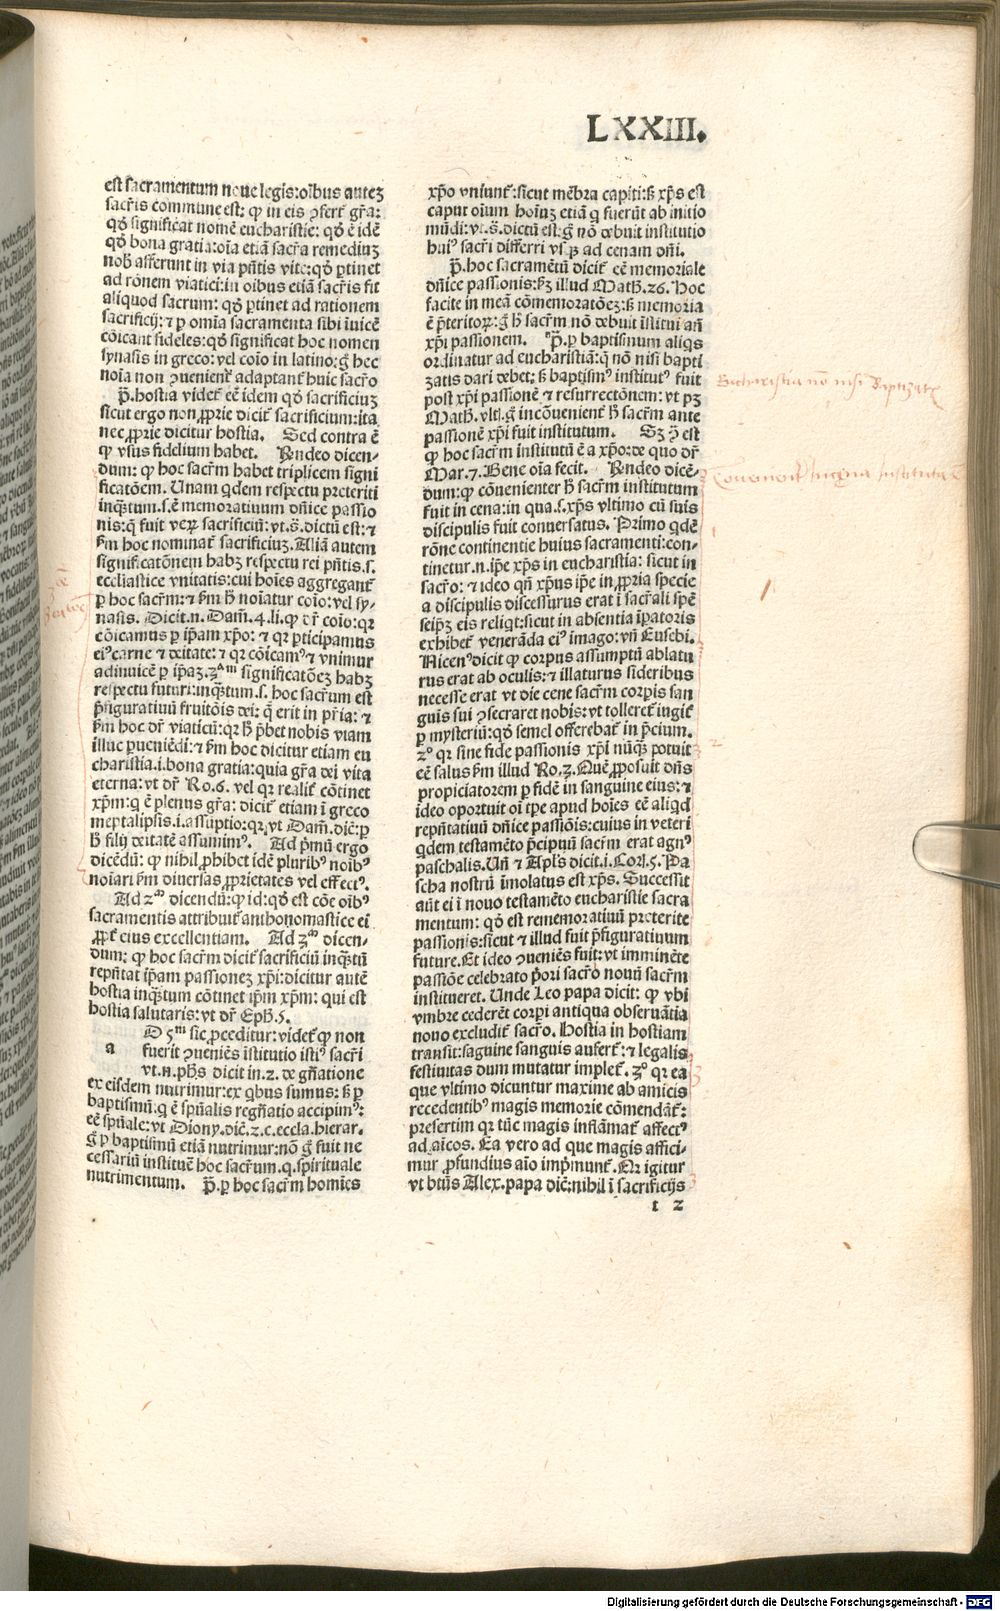 LXXIII.
est sacramentum noue legis: oībus autez
sacrīs commune est: ꝙ in eis ꝯfert᷑ gr̄a:
qd̄ significat nomē eucharistie: qd̄ ē idē
qd̄ bona gratia: oīa etiā sacr̄a remediuꝫ
nob̄ afferunt in via pn̄tis vite: qd̄ ꝑtinet
ad rōnem viatici: in oibus etiā sacr̄is fit
aliquod sacrum: qd̄ ꝑtinet ad rationem
sacrificij: ⁊ ꝑ omīa sacramenta sibi īuicē
cōicant fideles: qd̄ significat hoc nomen
synasis in greco: vel coīo in latino: g̊ hec
noīa non ꝯuenient᷑ adaptant᷑ huic sacr̄o
P̄. hostia videt᷑ eē idem qd̄ sacrificiuꝫ
sicut ergo non ꝓprie dicit᷑ sacrificium: ita
nec ꝓprie dicitur hostia. Sed contra ē
ꝙ vsus fidelium habet. Rn̄deo dicen-
dum: ꝙ hoc sacr̄m habet triplicem signi
ficatōem. Unam qdem respectu preteriti
inqꝫtum. s. ē memoratiuum dn̄ice passio
nis: q̄ fuit veꝝ sacrificiū: vt. s̄. dictū est: ⁊
ẜm hoc nominat᷑ sacrificiuꝫ. Aliā autem
significatōnem habꝫ respectu rei pn̄tis. s.
ecclīastice vnitatis: cui hoīes aggregant᷑
ꝑ hoc sacr̄m: ⁊ ẜm h̄ noīatur coīo: vel sy-
nasis. Dicit. n. Dam̄. 4. li. ꝙ dr̄ coīo: qꝛ
cōicamus ꝑ ip̄am xp̄o: ⁊ qꝛ ꝑticipamus
ei⁹ carne ⁊ deitate: ⁊ qꝛ cōicam⁹ ⁊ vnimur
adinuicē ꝑ ip̄aꝫ. 3ᵃᵐ significatōeꝫ habꝫ
respectu futuri: inqꝫtum. s. hoc sacr̄um est
p̄figuratiuū fruitōis dei: q̄ erit in pr̄ia: ⁊
ẜm hoc dr̄ viaticū: qꝛ h̄ p̄bet nobis viam
illuc ꝑueniēdi: ⁊ ẜm hoc dicitur etiam eu
charistia. i. bona gratia: quia gr̄a dei vita
eterna: vt dr̄ Ro. 6. vel qꝛ realit᷑ cōtinet
xp̄m: q̄ ē plenus gr̄a: dicit᷑ etiam ī greco
meptalipsis. i. assuptio: qꝛ, vt Dam̄. dic̄: ꝑ
h̄ filij deitatē assumim⁹. Ad p̄mū ergo
dicēdū: ꝙ nihil ꝓhibet idē pluribꝰ noībꝰ
noīari ẜm diuersas ꝓprietates vel effect⁹.
Ad 2ᵐ dicendū: ꝙ id: qd̄ est cōe oībꝰ
sacramentis attribuit᷑ anthonomastice ei
ꝓpt᷑ eius excellentiam. Ad 3ᵐ dicen-
dum: ꝙ hoc sacr̄m dicit᷑ sacrificiū inqꝫtū
repn̄tat ip̄am passionez xp̄i: dicitur autē
hostia inqꝫtum cōtinet ip̄m xp̄m: qui est
hostia salutaris: vt dr̄ Eph̄. 5.
D 5ᵐ sic ꝓceditur: videt᷑ ꝙ non
a fuerit ꝯueniēs īstitutio isti⁹ sacr̄i
vt. n. ph̄s dicit in. 2. de gn̄atione
ex eisdem nutrimur: ex qbus sumus: ẜ ꝑ
baptismū. q̄ ē spūalis regn̄atio accipim⁹:
eē spūale: vt Diony. dic̄. 2. c. eccla. hierar.
g̊ ꝑ baptismū etiā nutrimur: nō g̊ fuit ne
cessariū instituē hoc sacr̄um. q. spirituale
nutrimentum. P̄. ꝑ hoc sacr̄m homies
xp̄o vniunt᷑: sicut mēbra capiti: ẜ xp̄s est
caput oīum hoīuꝫ etiā q̄ fuerūt ab initio
mūdi: vt. s̄. dictū est: g̊ nō debuit institutio
hui⁹ sacr̄i differri vsꝫ ad cenam dn̄i.
P̄. hoc sacramētū dicit᷑ eē memoriale
dn̄ice passionis: ẜꝫ illud Math̄. 26. Hoc
facite in meā cōmemoratōeꝫ: ẜ memoria
ē p̄teritoꝝ: g̊ h̄ sacr̄m nō debuit īstitui an̄
xp̄i passionem. P̄. ꝑ baptismum aliqs
ordinatur ad eucharistiā: q̄ nō nisi bapti
zatis dari debet: ẜ baptism⁹ institut⁹ fuit
post xp̄i passionē ⁊ resurrectōnem: vt pꝫ
Math̄. vlt. g̊ incōuenient᷑ h̄ sacr̄m ante
passionē xp̄i fuit institutum. Sꝫ ꝯ̄ est
ꝙ hoc sacr̄m institutū ē a xp̄o: de quo dr̄
Mar. 7. Bene oīa fecit. Rn̄deo dicē-
dum: ꝙ cōuenienter h̄ sacr̄m institutum
fuit in cena: in qua. s. xp̄s vltimo cū suis
discipulis fuit conuersatus. Primo qdē
rōne continentie huius sacramenti: con-
tinetur. n. ip̄e xp̄s in eucharistia: sicut in
sacr̄o: ⁊ ideo qn̄ xp̄us ip̄e in ꝓpria specie
a discipulis discessurus erat ī sacr̄ali spē
seip̄ꝫ eis reliqt: sicut in absentia īpatoris
exhibet᷑ venerāda ei⁹ imago: vn̄ Eusebi.
Nicen⁹ dicit ꝙ corpus assumptū ablatu
rus erat ab oculis: ⁊ illaturus sideribus
necesse erat vt die cene sacr̄m corpis san
guis sui ꝯsecraret nobis: vt tolleret᷑ ingit᷑
ꝑ mysteriū: qd̄ semel offerebat᷑ in p̄cium.
2º qꝛ sine fide passionis xp̄i nūqꝫ potuit
eē salus ẜm illud Ro. 3. Quē ꝓposuit dn̄s
propiciatorem ꝑ fidē in sanguine eius: ⁊
ideo oportuit oī tp̄e apud hoīes eē aliqd
repn̄tatiuū dn̄ice passiōis: cuius in veteri
qdem testamēto p̄cipuū sacr̄m erat agn⁹
paschalis. Un̄ ⁊ Apl̄s dicit. i. Cor. 5. Pa
scha nostrū īmolatus est xp̄s. Successit
aūt ei ī nouo testamēto eucharistie sacra
mentum: qd̄ est rememoratiuū preterite
passionis: sicut ⁊ illud fuit p̄figuratiuum
future. Et ideo ꝯueniēs fuit: vt imminēte
passiōe celebrato p̄ori sacr̄o nouū sacr̄m
institueret. Unde Leo papa dicit: ꝙ vbi
vmbre cederēt corpi antiqua obseruātia
nono excludit᷑ sacr̄o. Hostia in hostiam
transit: sāguine sanguis aufert᷑: ⁊ legalis
festiuitas dum mutatur implet᷑. 3º qꝛ ea
que vltimo dicuntur maxime ab amicis
recedentibꝰ magis memorie cōmendāt᷑:
presertim qꝛ tūc magis inflāmat᷑ affect⁹
ad aīcos. Ea vero ad que magis affici-
mur ꝓfundius aīo imp̄munt᷑. Qꝛ igitur
vt btūs Alex. papa dic̄: nihil ī sacrificijs
t 2
Eucharistia nō nisi Baptizatis
1
2
3
Digitalisierung gefördert durch die Deutsche Forschungsgemeinschaft - DFG